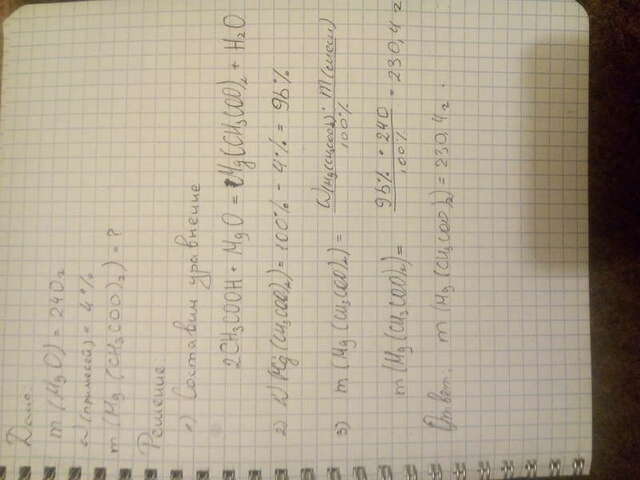 Дано:
m (MgO) = 240г
ω (примесей) = 4%
m (Mg (CH3COO)2) = ?
Решение:
1) Составим уравнение
2CH3COOH + MgO = Mg(CH3COO)2 + H2O
2) ω(Mg(CH3COO)2) = 100% - 4% = 96%
3) m (Mg (CH3COO)2) = ω(Mg(CH3COO)2) · m(смеси) / 100%
m (Mg (CH3COO)2) = 96% · 240 / 100% = 230,4 г
Ответ: m (Mg (CH3COO)2) = 230,4 г.